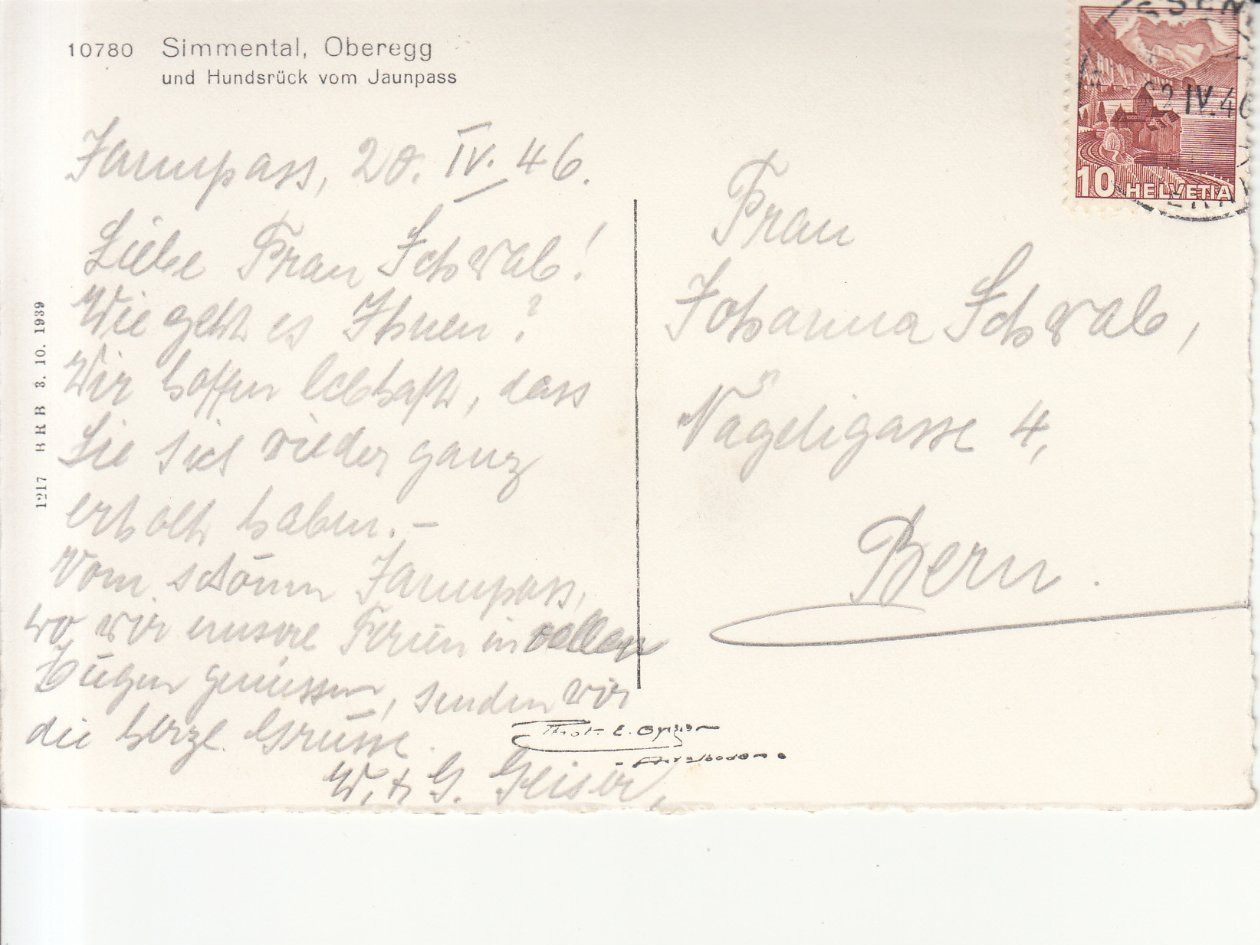 10780 Simmental, Oberegg
und Hundsrück vom Jaunpass
Jaunpass, 20. IV. 46.
Liebe Frau Schwab!
Wie geht es Ihnen?
Wir hoffen lebhaft, dass
Sie sich wieder ganz
erholt haben. –
Vom schönen Jaunpass,
wo wir unsere Ferien in vollen
Zügen geniessen, senden wir
die herzl. Grüsse.
W. + G. Geiser.
1217 BRB 3. 10. 1939
Phot. E. Gyger
Adelboden
Frau
Johanna Schwab,
Nägeligasse 4,
Bern.
IV. 46
10 HELVETIA